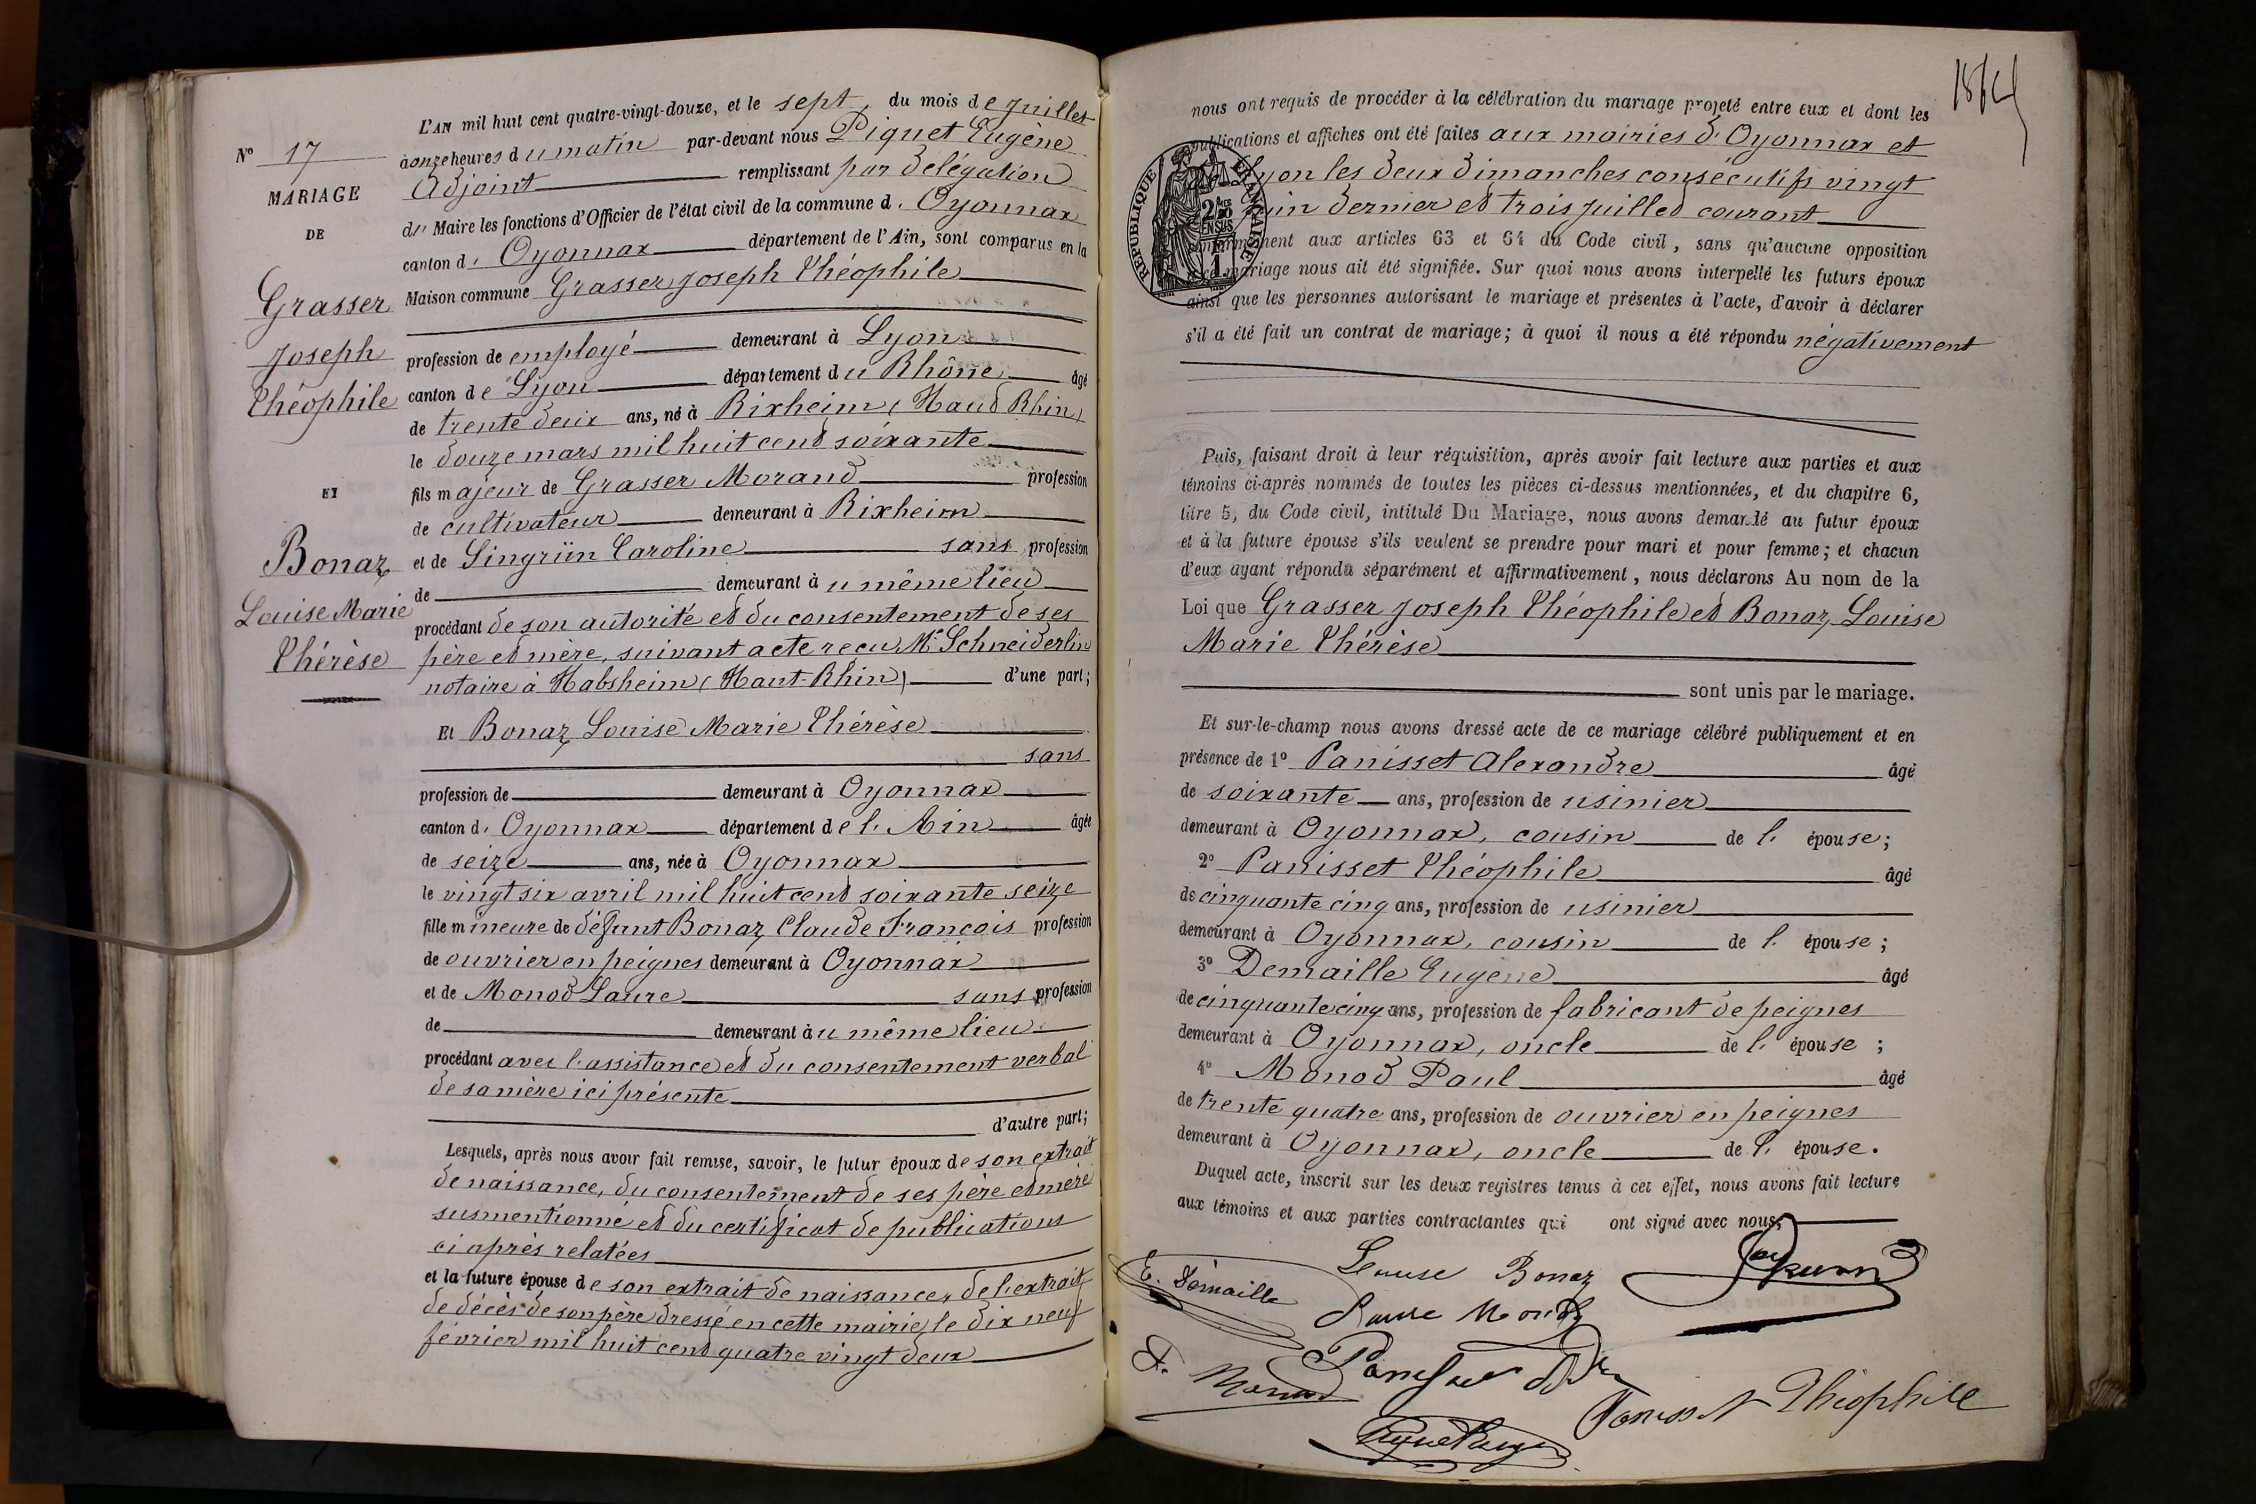 L'AN mil huit cent quatre-vingt-douze, et le sept, du mois de juillet
N° 17
à onze heures du matin par-devant nous Piquet Eugène
Adjoint remplissant par délégation
du Maire les fonctions d'Officier de l'état civil de la commune d' Oyonnax
canton d' Oyonnax département de l'Ain, sont comparus en la
Maison commune Grasser Joseph Théophile
profession de employé demeurant à Lyon
canton de Lyon département du Rhône âgé
de trente deux ans, né à Rixheim (Haut Rhin)
le douze mars mil huit cent soixante
fils majeur de Grasser Morand profession
de cultivateur demeurant à Rixheim
et de Singrün Caroline sans profession
de demeurant à u même lieu
procédant de son autorité et du consentement de ses
père et mère, suivant acte recu Me Schneiderlin
notaire à Habsheim (Haut-Rhin) d'une part;
Et Bonaz Louise Marie Thérèse
sans
profession de demeurant à Oyonnax
canton d' Oyonnax département de l'Ain âgée
de seize ans, née à Oyonnax
le vingt six avril mil huit cent soixante seize
fille mineure de défunt Bonaz Claude François profession
de ouvrier en peignes demeurant à Oyonnax
et de Monod Laure sans profession
de demeurant à u même lieu
procédant avec l'assistance et du consentement verbal
de sa mère ici présente
d'autre part;
Lesquels, après nous avoir fait remise, savoir, le futur époux de son extrait
de naissance, du consentement de ses père et mère
susmentionné et du certificat de publications
ci après relatées
et la future épouse de son extrait de naissance, de l'extrait
de décès de son père dressé en cette mairie le dix neuf
février mil huit cent quatre vingt deux
MARIAGE
DE
Grasser
Joseph
Théophile
ET
Bonaz
Louise Marie
Thérèse
nous ont requis de procéder à la célébration du mariage projeté entre eux et dont les
publications et affiches ont été faites aux mairies d'Oyonnax et
Lyon les deux dimanches consécutifs vingt
juin dernier et trois juillet courant
conformément aux articles 63 et 64 du Code civil, sans qu'aucune opposition
à ce mariage nous ait été signifiée. Sur quoi nous avons interpellé les futurs époux
ainsi que les personnes autorisant le mariage et présentes à l'acte, d'avoir à déclarer
s'il a été fait un contrat de mariage; à quoi il nous a été répondu négativement
RÉPUBLIQUE FRANÇAISE
Puis, faisant droit à leur réquisition, après avoir fait lecture aux parties et aux
témoins ci-après nommés de toutes les pièces ci-dessus mentionnées, et du chapitre 6,
titre 5, du Code civil, intitulé Du Mariage, nous avons demandé au futur époux
et à la future épouse s'ils veulent se prendre pour mari et pour femme; et chacun
d'eux ayant répondu séparément et affirmativement, nous déclarons Au nom de la
Loi que Grasser Joseph Théophile et Bonaz Louise
Marie Thérèse
sont unis par le mariage.
Et sur-le-champ nous avons dressé acte de ce mariage célébré publiquement et en
présence de 1° Panisset Alexandre âgé
de soixante ans, profession de usinier
demeurant à Oyonnax, cousin de l' épouse;
2° Panisset Théophile âgé
de cinquante cinq ans, profession de usinier
demeurant à Oyonnax, cousin de l' épouse;
3° Demaille Eugene âgé
de cinquante cinq ans, profession de fabricant de peignes
demeurant à Oyonnax, oncle de l' épouse;
4° Monod Paul âgé
de trente quatre ans, profession de ouvrier en peignes
demeurant à Oyonnax, oncle de l' épouse.
Duquel acte, inscrit sur les deux registres tenus à cet effet, nous avons fait lecture
aux témoins et aux parties contractantes qui ont signé avec nous,
Louise Bonaz
E. Démaille
Laure Monod
Monod
Panisset Théophile